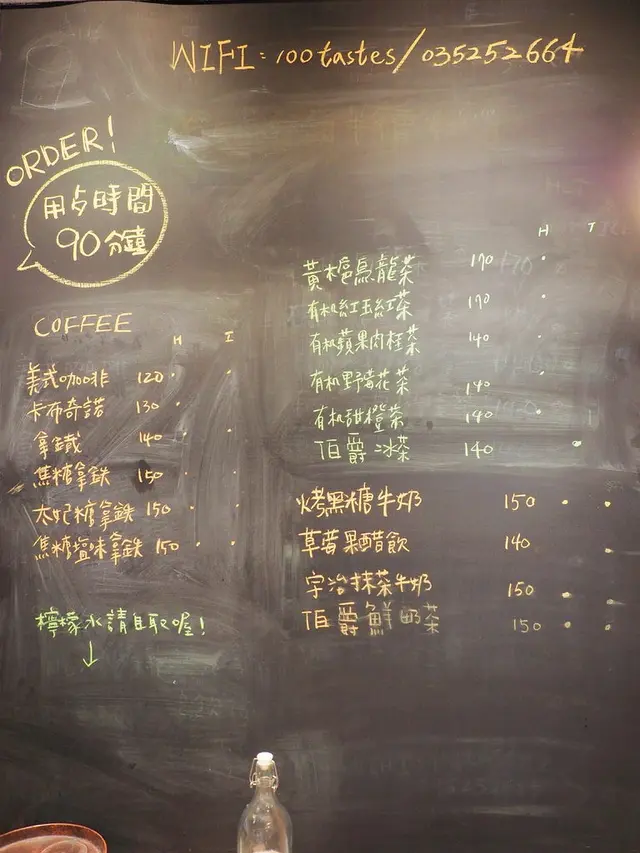 WIFI: 100tastes/035252664
ORDER!
用点時間
90分鐘
COFFEE
H I
美式咖啡 120 ·
卡布奇諾 130 ·
拿鐵 140 · ·
焦糖拿鉄 150 · ·
太妃糖拿鉄 150 · ·
焦糖塩味拿鉄 150 · ·
檸檬水請自取喔!
↓
H I
黃梔烏龍茶 170 ·
有机紅玉紅茶 170 ·
有机蘋果肉桂茶 140 ·
有机野莓花茶 140 ·
有机甜橙茶 140 ·
伯爵冰茶 140 ·
烤黑糖牛奶 150 · ·
草莓果醋飲 140 ·
宇治抹茶牛奶 150 · ·
伯爵鮮奶茶 150 · ·